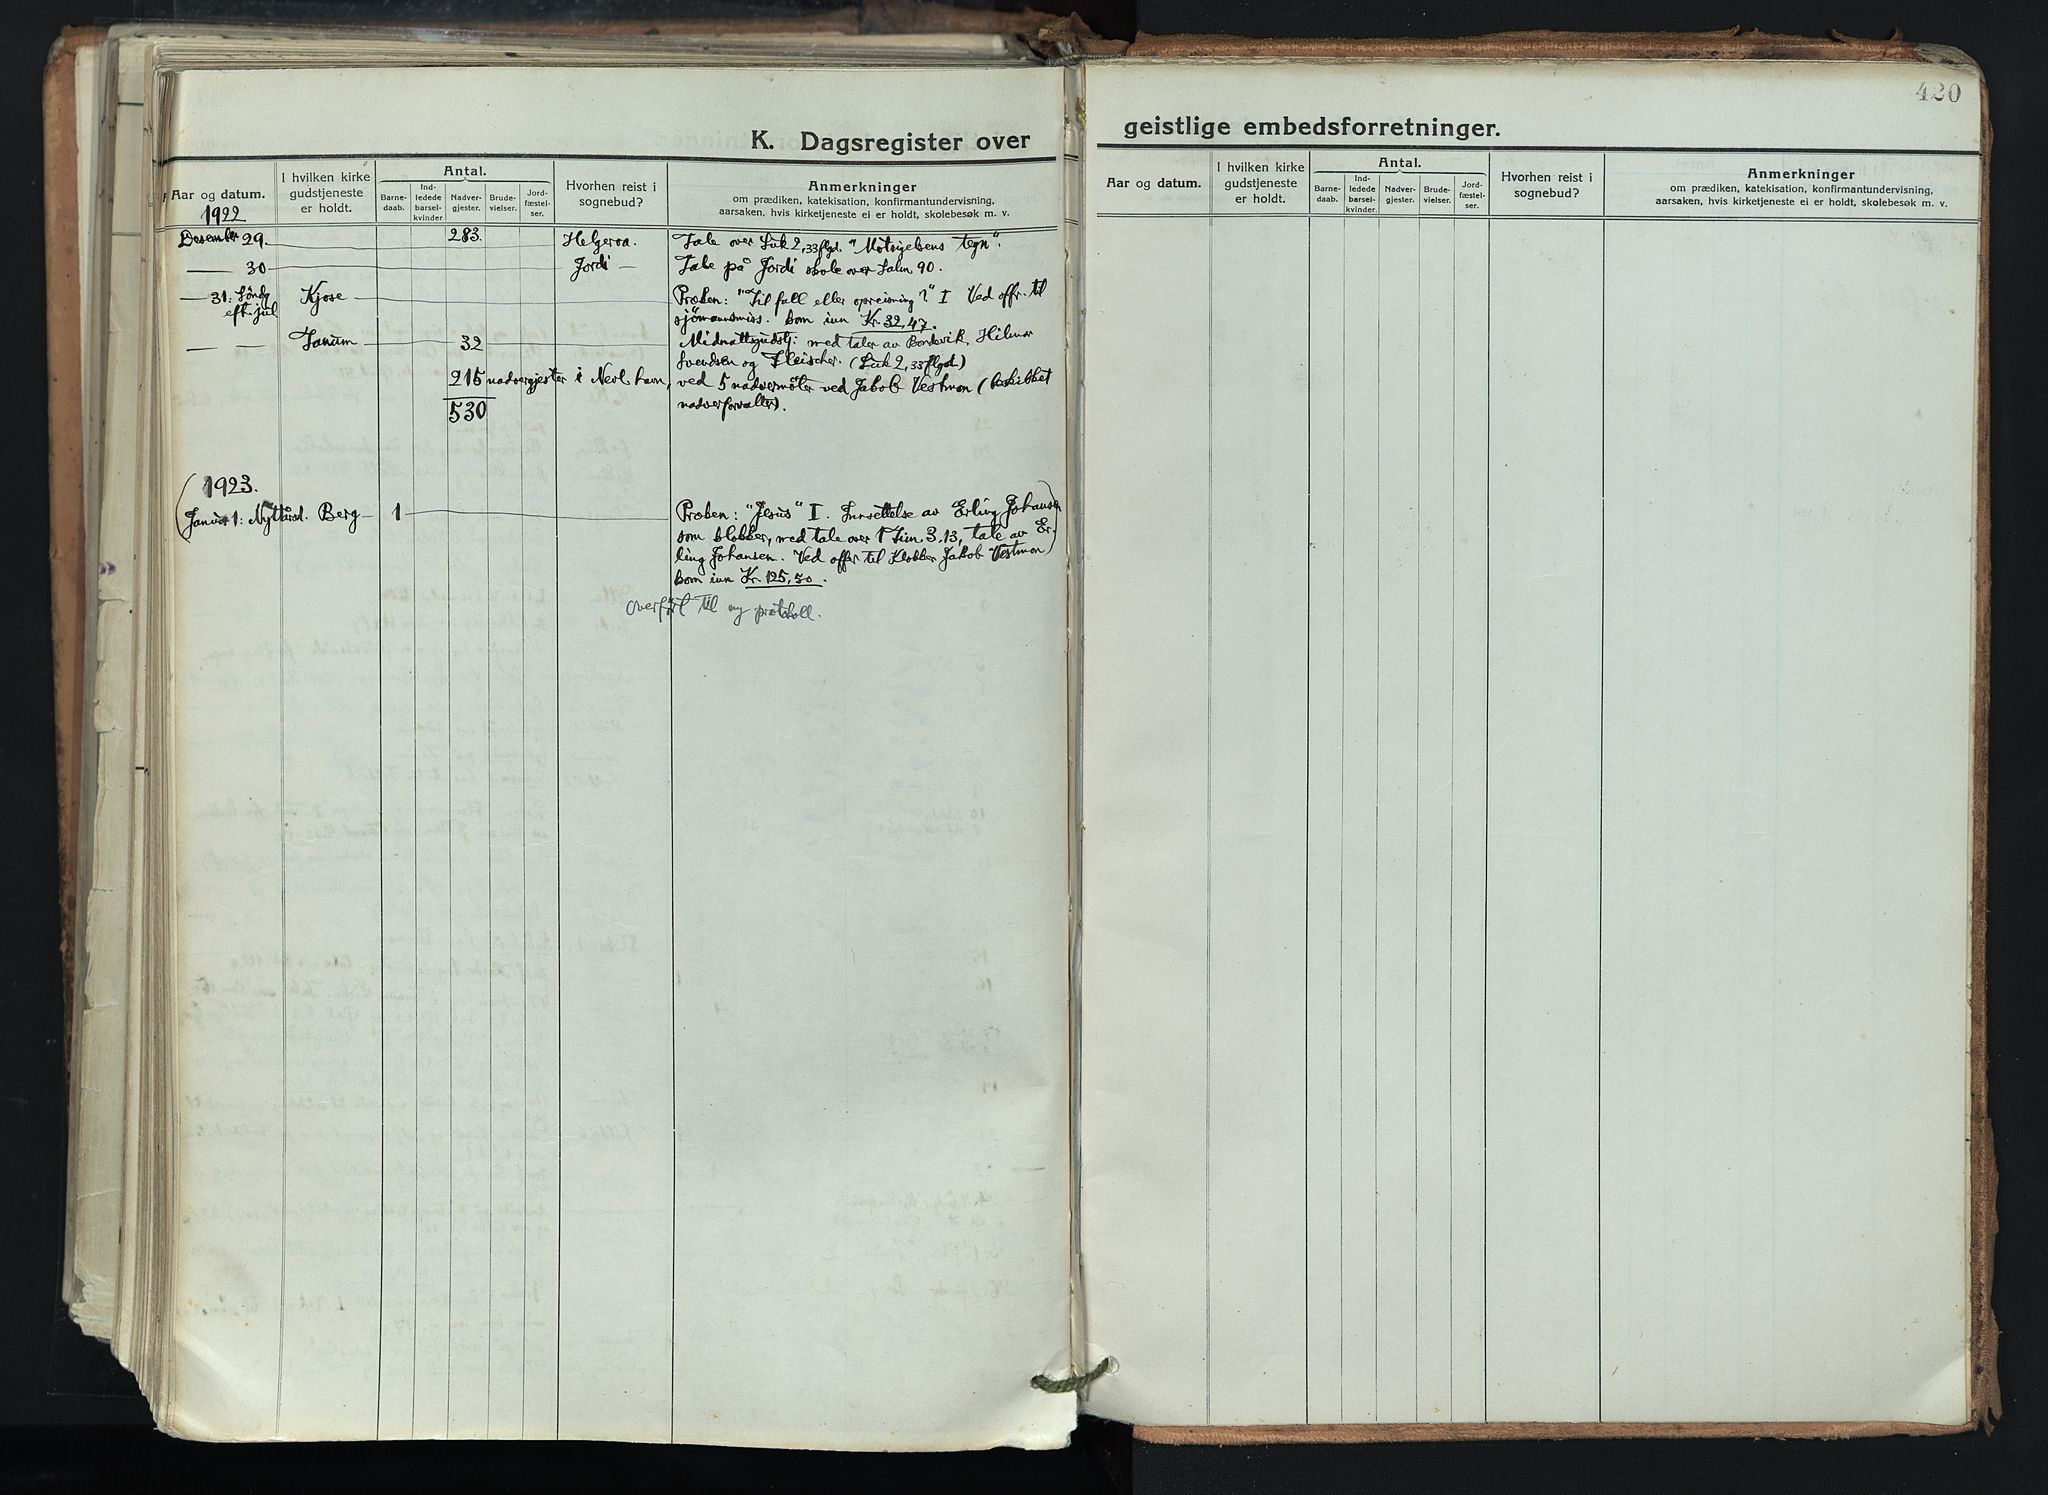 K. Dagsregister over
Aar og datum.
I hvilken kirke
gudstjeneste
er holdt.
Antal.
Barne-
daab.
Ind-
ledede
barsel-
kvinder
Nadver-
gjester.
Brude-
vielser.
Jord-
fæstel-
ser.
Hvorhen reist i
sognebud?
Anmerkninger
om prædiken, katekisation, konfirmantundervisning,
aarsaken, hvis kirketjeneste ei er holdt, skolebesøk m. v.
1922
Desember 29. 283. Helgeroa. Tale over Luk 2,33 flgd. "Motsigelsens tegn".
— 30 Jordi — Tale på Jordi skole over Salm 90.
— 31: Sönd. Kjose — Preken: "Til fall eller opreisning?" I Ved offr. til
eft. jul
sjömannsmiss. kom inn Kr. 32,47.
— — Tanum — 32 Midnattsgudstj: med taler av Bordevik, Hilmar
Svendsen og Fleischer. (Luk 2, 33 flgd.)
215 nadvergjester i Nevl.havn, ved 5 nadvermöter ved Jakob Vestmon (beskikket
530 nadverforvalter).
(1923.
Januar 1: Nyttårsd. Berg — 1 Preken: "Jesus" I. Innsettelse av Erling Johansen
som klokker, med tale over 1 Tim 3.13, tale av Er-
ling Johansen. Ved offer til Klokker Jakob Vestmon)
kom inn Kr. 125,50.
overfört til ny protokoll.
420
geistlige embedsforretninger.
Aar og datum.
I hvilken kirke
gudstjeneste
er holdt.
Antal.
Barne-
daab.
Ind-
ledede
barsel-
kvinder.
Nadver-
gjester.
Brude-
vielser.
Jord-
fæstel-
ser.
Hvorhen reist i
sognebud?
Anmerkninger
om prædiken, katekisation, konfirmantundervisning,
aarsaken, hvis kirketjeneste ei er holdt, skolebesøk m. v.